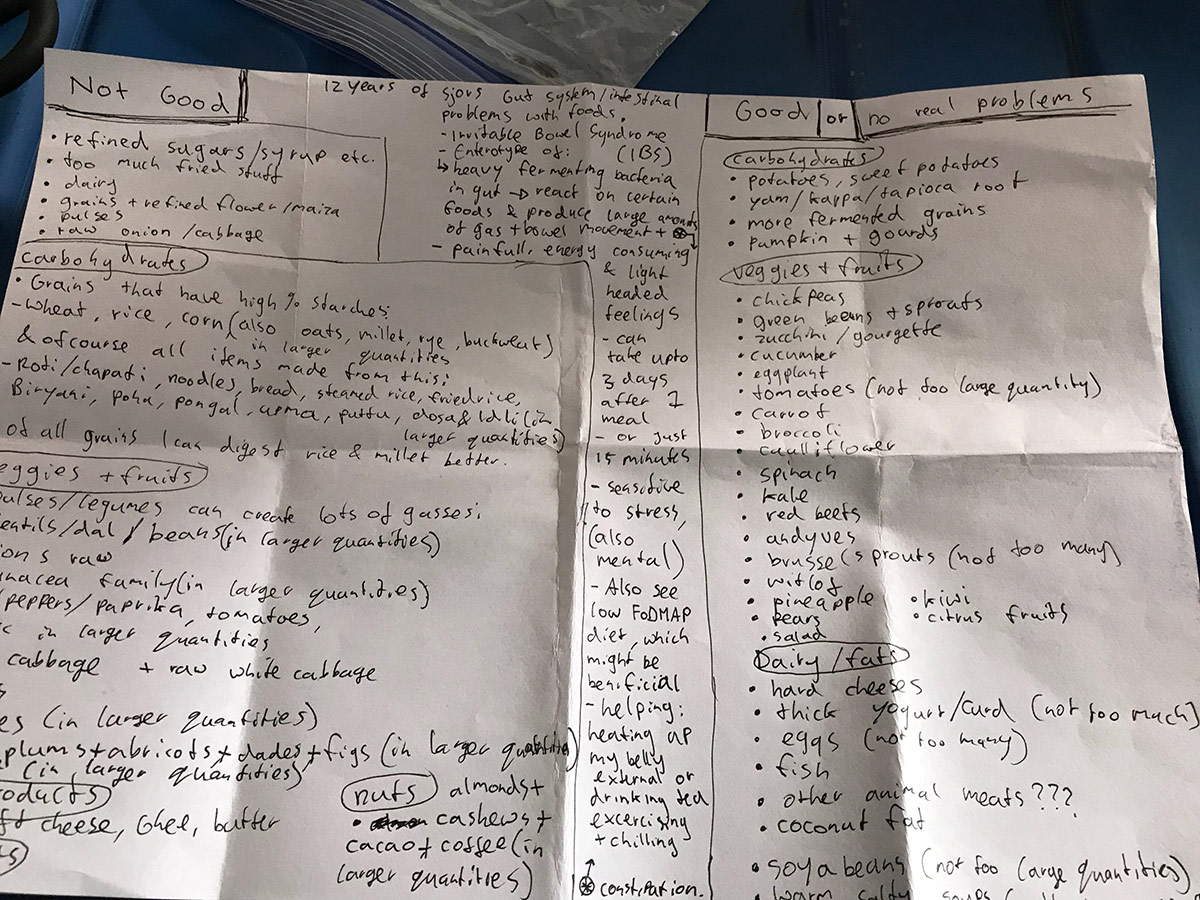 Not Good
• refined sugars/syrup etc.
• too much fried stuff
• dairy
• grains + refined flower/maiza
• pulses
• raw onion/cabbage
carbohydrates
• Grains that have high % starches:
- wheat, rice, corn (also oats, millet, rye, buckweat)
in larger quantities
& ofcourse all items made from this:
- Roti/chapati, noodles, bread, steamed rice, friedrice,
Biryani, poha, pongal, upma, puttu, dosa & Idli (in
larger quantities)
of all grains I can digest rice & millet better.
eggies + fruits
pulses/legumes can create lots of gasses:
entils/dal / beans (in larger quantities)
ions raw
anacea family (in larger quantities)
peppers/paprika, tomatoes,
ic in larger quantities
cabbage + raw white cabbage
es (in larger quantities)
plums + abricots + dades + figs (in larger quantities)
(in larger quantities)
oducts
ft cheese, Ghee, butter
nuts almonds +
• cashews +
cacao + coffee (in
larger quantities)
12 years of sjors Gut system/intestinal
problems with foods.
- Irritable Bowel Syndrome
(IBS)
- Enterotype of:
↳ heavy fermenting bacteria
in gut → react on certain
foods & produce large amounts
of gas + bowel movement + ⊛
- painfull, energy consuming
& light
headed
feelings
- can
take upto
3 days
after 1
meal
- or just
15 minutes
- sensitive
to stress,
(also
mental)
- Also see
low FODMAP
diet, which
might be
benificial
- helping:
heating up
my belly
external or
drinking tea
excercising
+ chilling
⊛ constipation.
Good or no real problems
carbohydrates
• potatoes, sweet potatoes
• yam/kappa/tapioca root
• more fermented grains
• pumpkin + gourds
veggies + fruits
• chickpeas
• green beans + sprouts
• zucchini/gourgette
• cucumber
• eggplant
• tomatoes (not too large quantity)
• carrot
• broccoli
• caulliflower
• spinach
• kale
• red beets
• andyves
• brussels sprouts (not too many)
• witlof
• pineapple • kiwi
• pears • citrus fruits
• salad
Dairy/fats
• hard cheeses
• thick yogurt/curd (not too much)
• eggs (not too many)
• fish
• other animal meats???
• coconut fat
• soya beans (not too large quantities)
• warm salty soups